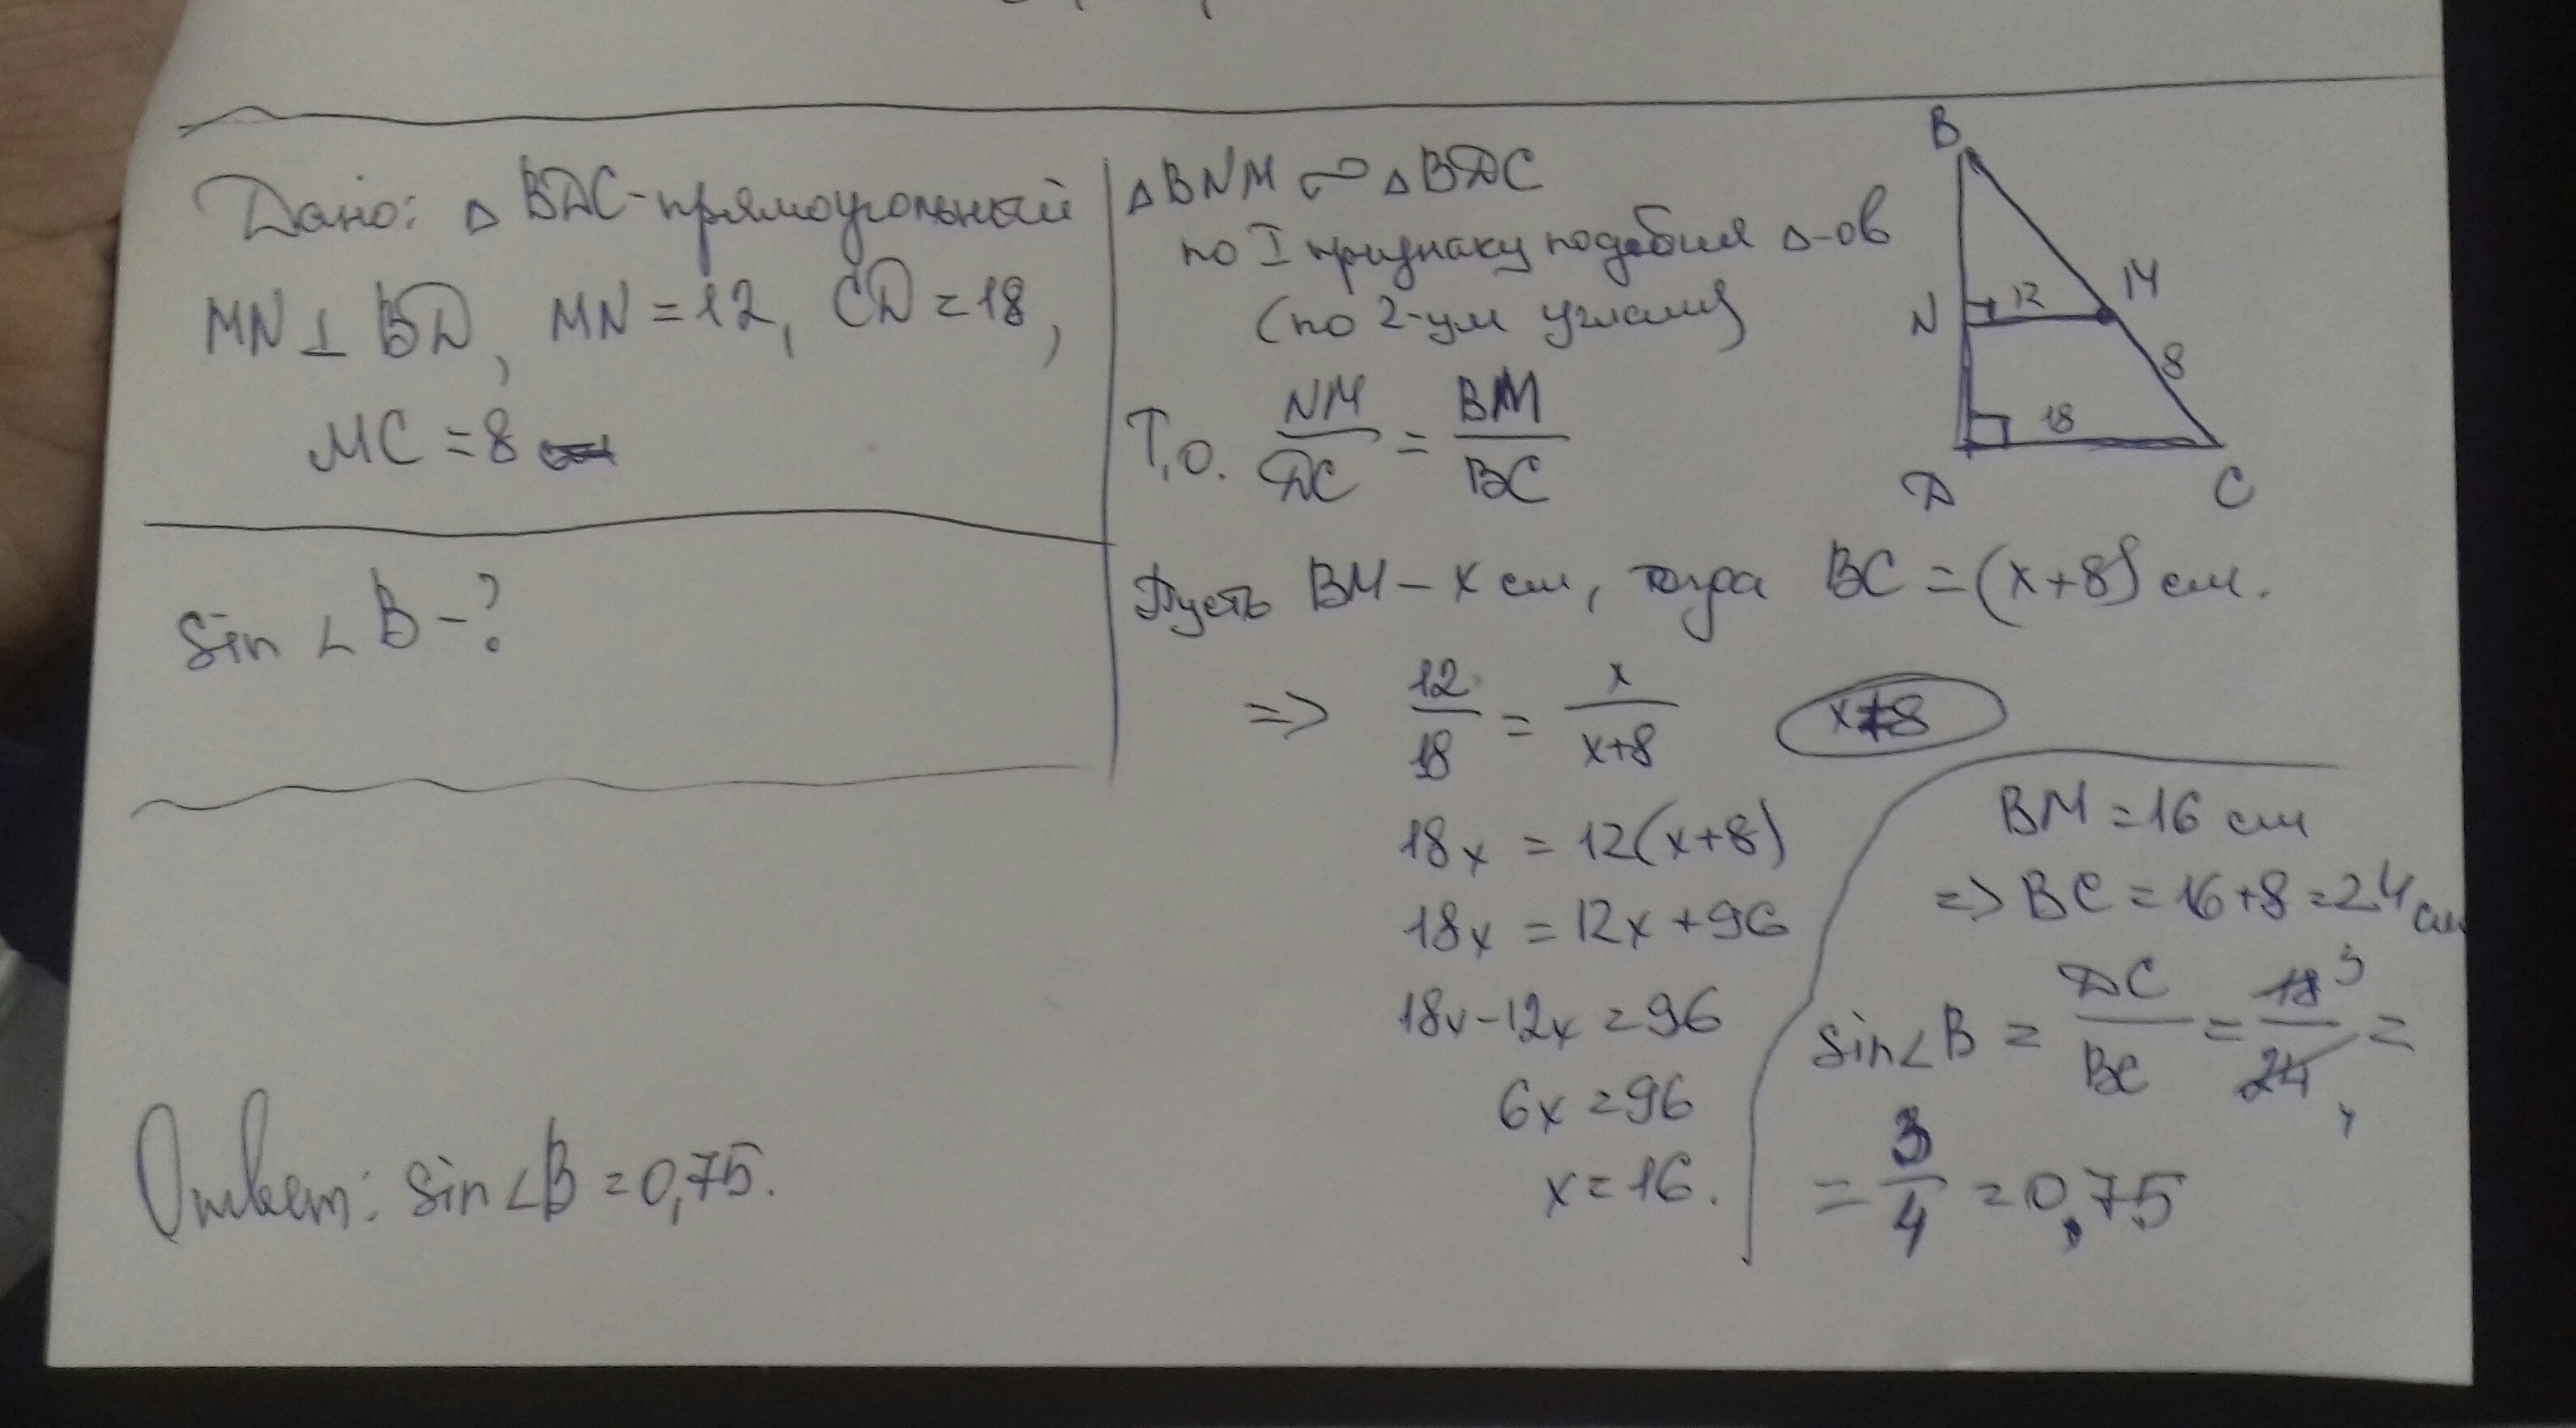 Дано: △ BDC-прямоугольный
MN ⊥ BD, MN = 12, CD = 18,
MC = 8
sin ∠ B - ?
△ BNM ∾ △ BDC
по I признаку подобия △-ов
(по 2-ум углам)
Т.о. NM/DC = BM/BC
Пусть BM - x см, тогда BC = (x+8) см.
=> 12/18 = x/(x+8)
x≠8
18x = 12(x+8)
18x = 12x + 96
18x - 12x = 96
6x = 96
x = 16.
B
N 12 14
8
18
D C
BM = 16 см
=> BC = 16 + 8 = 24 см
sin∠B = DC/BC = 18 3/24 4 =
= 3/4 = 0,75
Ответ: sin∠B = 0,75.